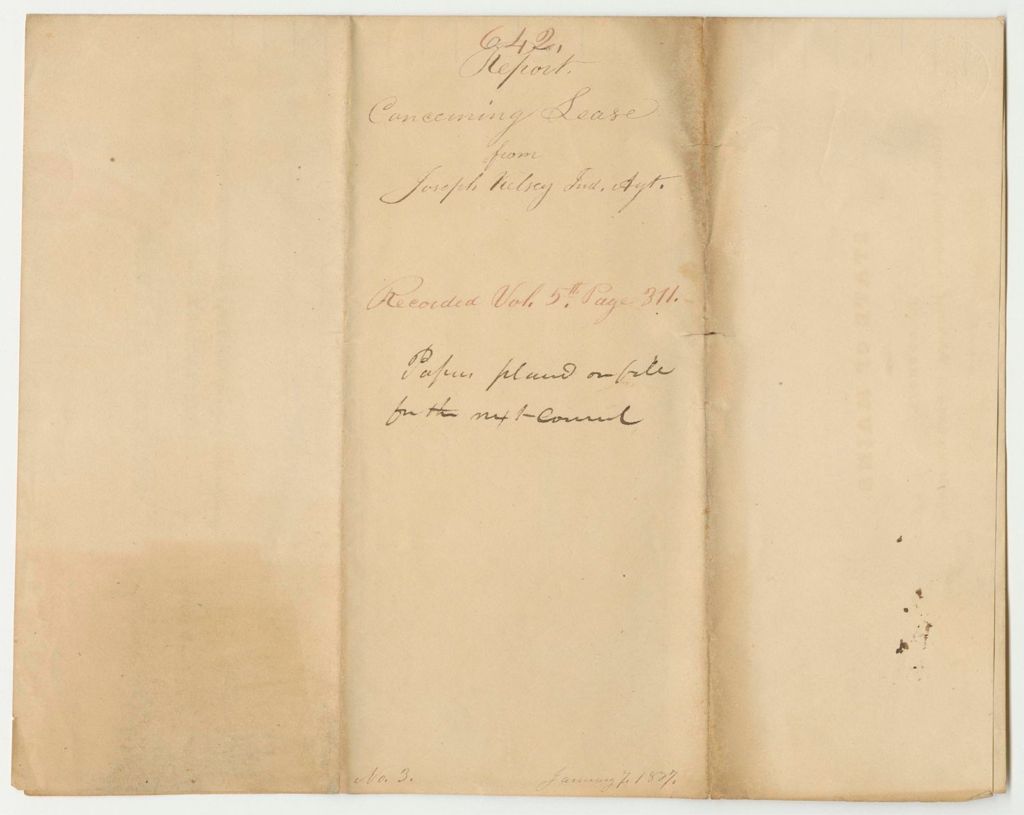 642.
Report.
Concerning Lease
from
Joseph Kelsey Ind. Agt.
Recorded Vol. 5th. Page 311.
Papers placed on file
for the next Council
No. 3.
January 7. 1837.